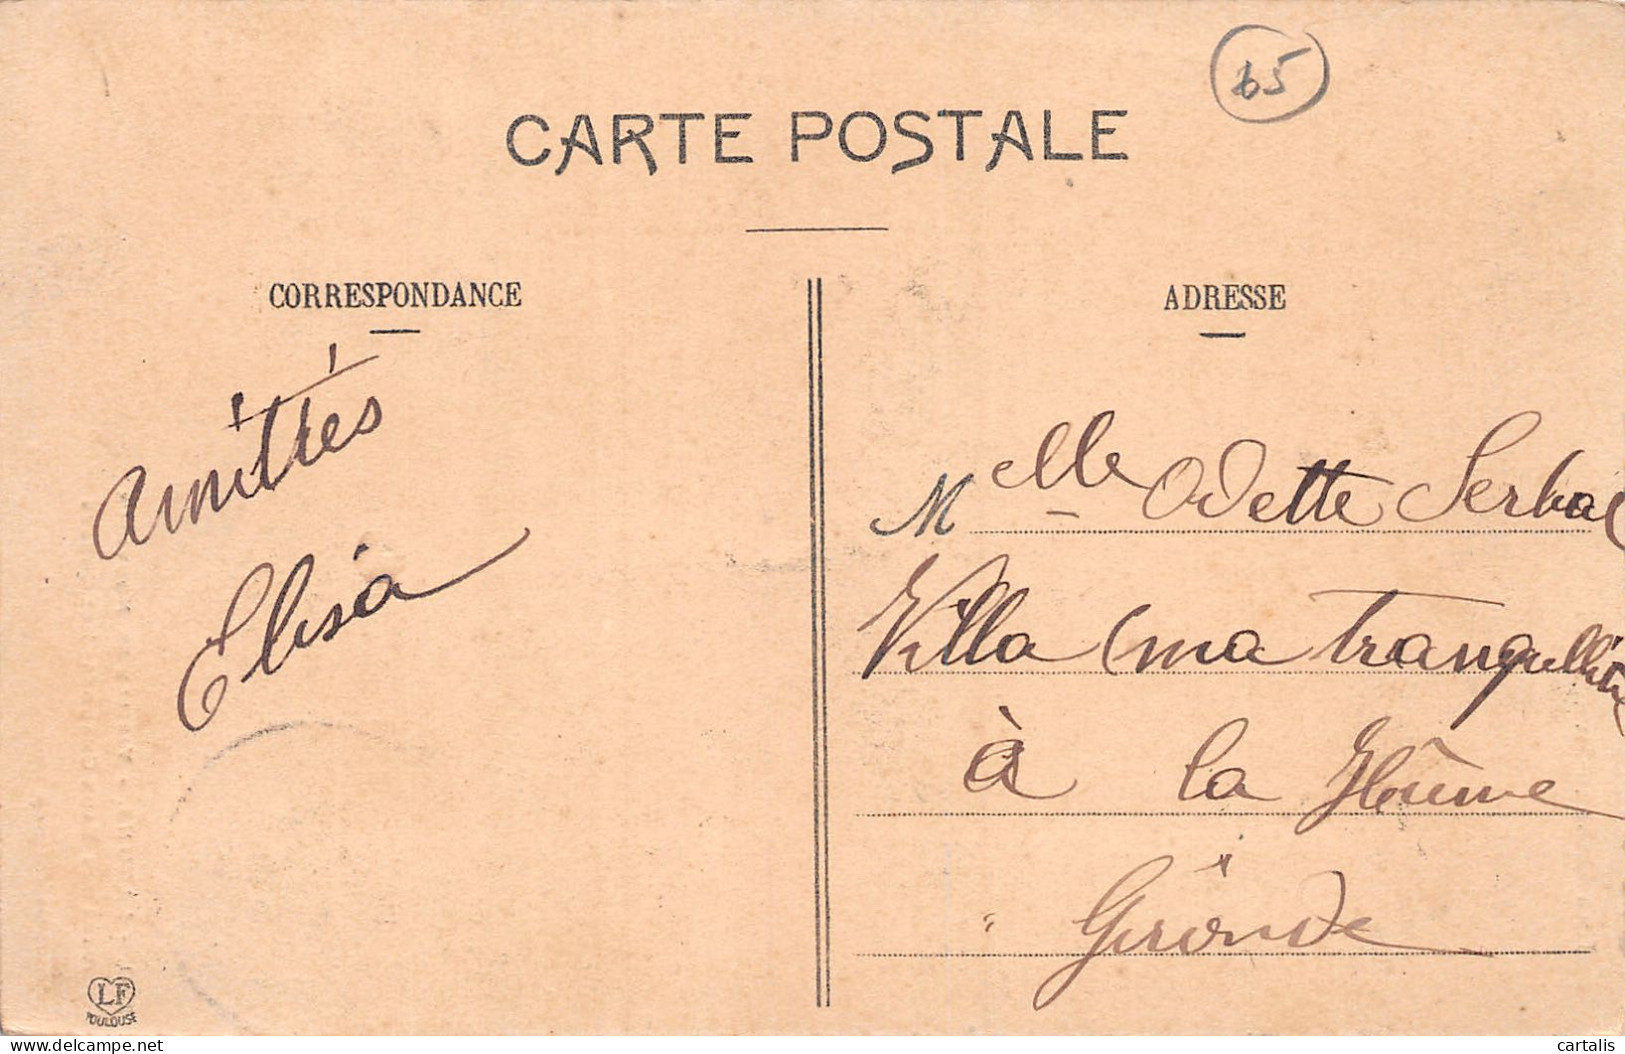 65
CARTE POSTALE
CORRESPONDANCE
amittiés
Elisa
ADRESSE
M elle Odette Serbat
Villa (ma tranquillité
à la Hûme
Gironde
LF
TOULOUSE
delcampe.net
cartalis